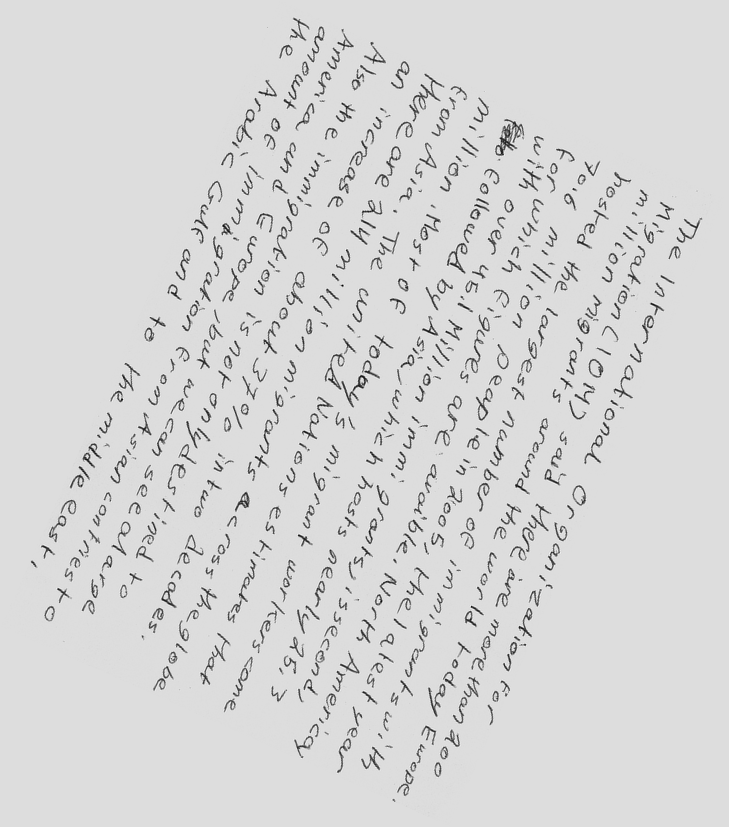 The International Organization for
Migration (IOM) said there are more than 200
million migrants around the world today Europe.
hosted the largest number of immigrants with
70,6 million people in 2005, the latest year
for which figures are avaible. North America
with over 45.1 Million immigrants, is second,
followed by Asia, which hosts nearly 25,3
million. Most of today's migrant workers come
from Asia. The united Nations estimates that
there are 214 million migrants across the globe
an increase of about 37% in two decades.
Also the immigration is not only destined to
America and Europe, but we can see a large
amount of immigration from Asian contries to
the Arabic Gulf and to the middle east,